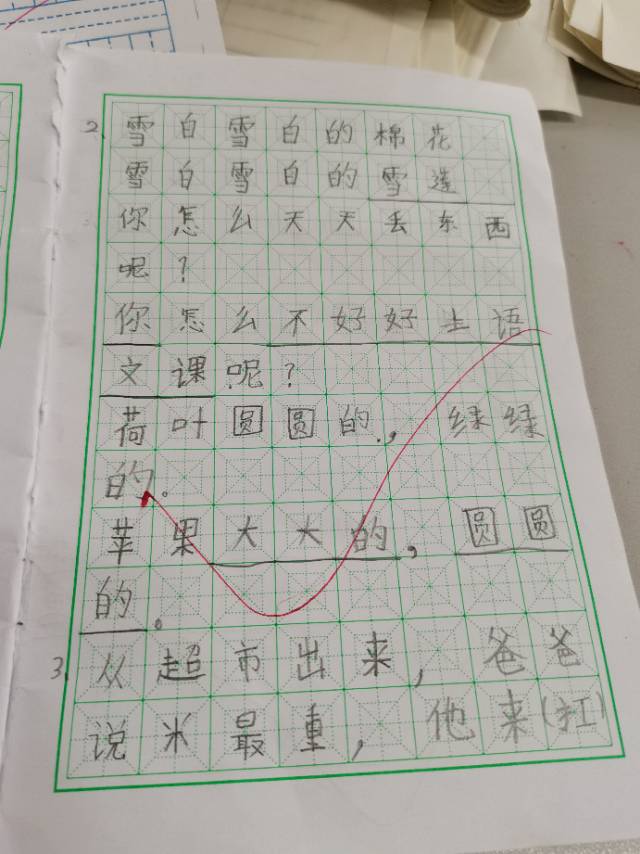 2、雪白雪白的棉花
雪白雪白的雪莲
你怎么天天丢东西
呢？
你怎么不好好上语
文课呢？
荷叶圆圆的，绿绿
的。
苹果大大的，圆圆
的。
3、从超市出来，爸爸
说米最重，他来(扛)